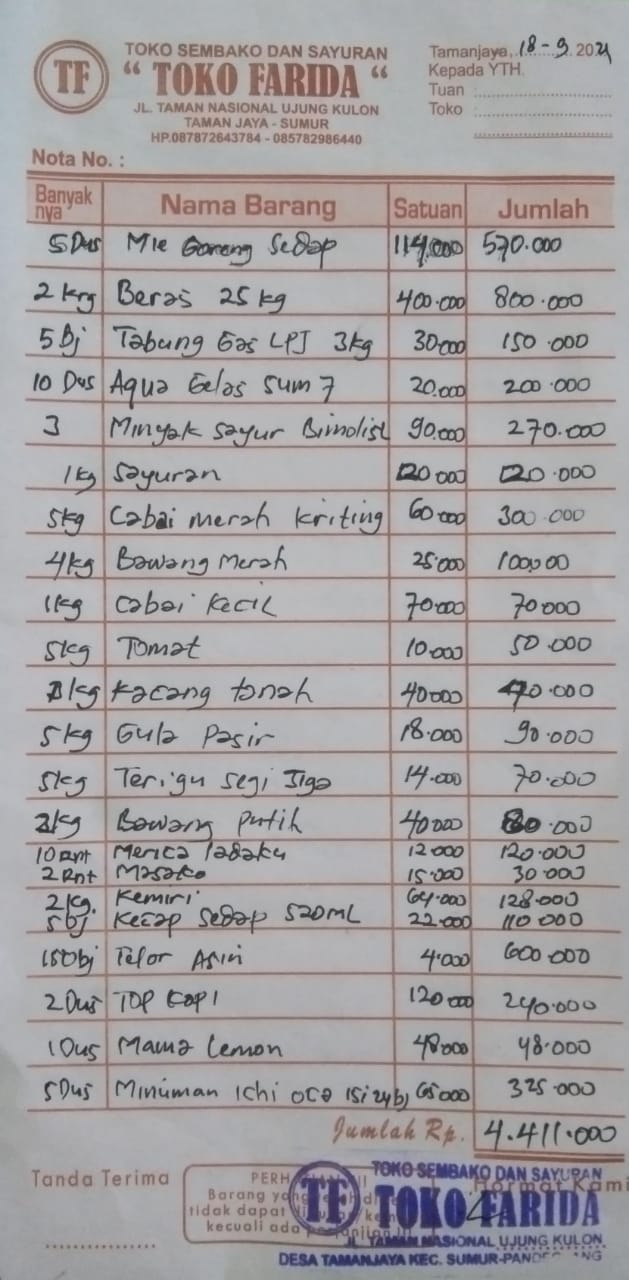 TF
TOKO SEMBAKO DAN SAYURAN
“ TOKO FARIDA “
JL. TAMAN NASIONAL UJUNG KULON
TAMAN JAYA - SUMUR
HP.087872643784 - 085782986440
Tamanjaya, 18 - 9 2021
Kepada YTH.
Tuan
Toko
Nota No. :
Banyak nya Nama Barang Satuan Jumlah
5 Dus Mie Goreng Sedap 114.000 570.000
2 Krg Beras 25 kg 400.000 800.000
5 Bj Tabung Gas LPJ 3kg 30.000 150.000
10 Dus Aqua Gelas Sum 7 20.000 200.000
3 Minyak Sayur Bimolist 90.000 270.000
1kg Sayuran 120.000 120.000
5kg Cabai merah kriting 60.000 300.000
4kg Bawang Merah 25.000 100.000
1kg Cabai Kecil 70.000 70.000
5kg Tomat 10.000 50.000
1kg Kacang tanah 40000 40.000
5kg Gula Pasir 18.000 90.000
5kg Terigu Segi Tiga 14.000 70.000
2kg Bawang Putih 40000 80.000
10 Rnt Merica ladaku 12000 120.000
2 Rnt Masako 15.000 30.000
2 kg. Kemiri 64.000 128.000
5 bj Kecap Sedap 520ML 22.000 110.000
150bj Telor Asin 4.000 600.000
2 Dus TOP KOPI 120.000 240.000
1 Dus Mama Lemon 48.000 48.000
5 Dus Minuman Ichi oca isi 24bj 65000 325.000
Jumlah Rp. 4.411.000
Tanda Terima
Hormat Kami
Barang
tidak dapat
kecuali ada
TF
TOKO SEMBAKO DAN SAYURAN
TOKO FARIDA
JL. TAMAN NASIONAL UJUNG KULON
DESA TAMANJAYA KEC. SUMUR-